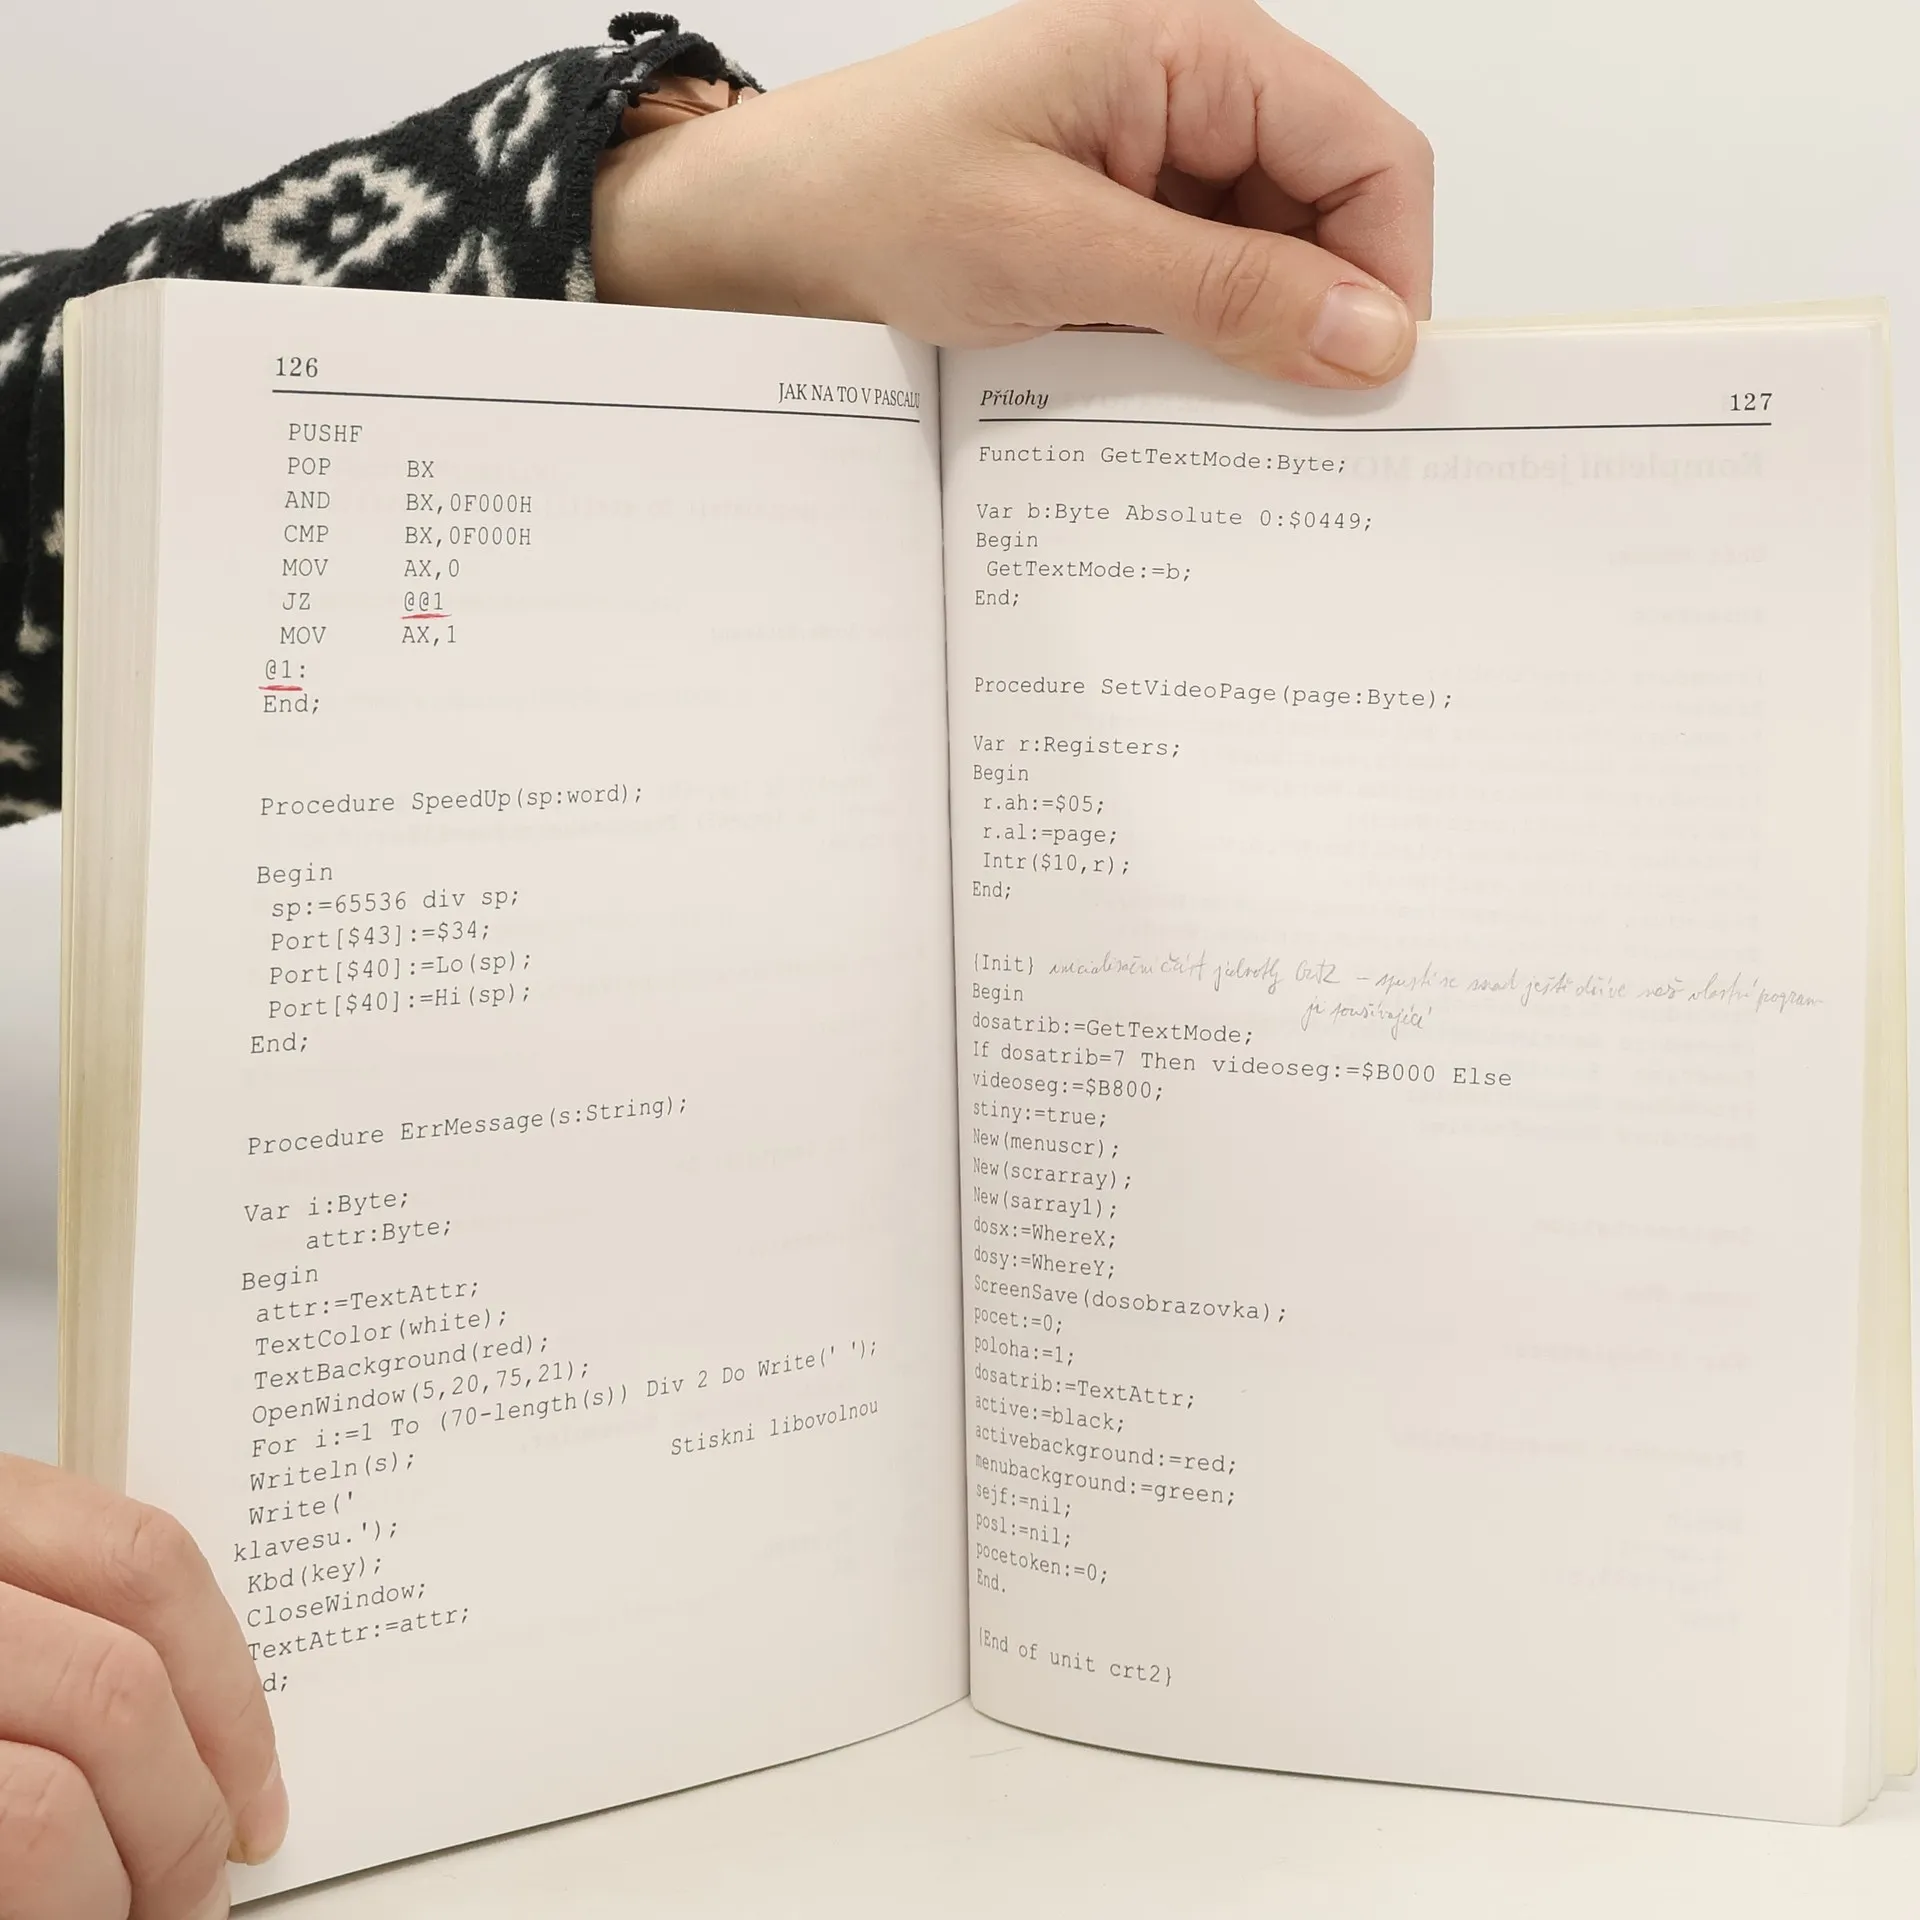 126
JAK NA TO V PASCALU
PUSHF
POP BX
AND BX,0F000H
CMP BX,0F000H
MOV AX,0
JZ @@1
MOV AX,1
@1:
End;
Procedure SpeedUp(sp:word);
Begin
sp:=65536 div sp;
Port[$43]:=$34;
Port[$40]:=Lo(sp);
Port[$40]:=Hi(sp);
End;
Procedure ErrMessage(s:String);
Var i:Byte;
attr:Byte;
Begin
attr:=TextAttr;
TextColor(white);
TextBackground(red);
OpenWindow(5,20,75,21);
For i:=1 To (70-length(s)) Div 2 Do Write(' ');
Writeln(s);
Write(' Stiskni libovolnou
klavesu.');
Kbd(key);
CloseWindow;
TextAttr:=attr;
d;
Přílohy
127
Function GetTextMode:Byte;
Var b:Byte Absolute 0:$0449;
Begin
GetTextMode:=b;
End;
Procedure SetVideoPage(page:Byte);
Var r:Registers;
Begin
r.ah:=$05;
r.al:=page;
Intr($10,r);
End;
{Init} inicializační část jednotky Crt2 – spustí se snad ještě dříve než vlastní program
ji používající
Begin
dosatrib:=GetTextMode;
If dosatrib=7 Then videoseg:=$B000 Else
videoseg:=$B800;
stiny:=true;
New(menuscr);
New(scrarray);
New(sarray1);
dosx:=WhereX;
dosy:=WhereY;
ScreenSave(dosobrazovka);
pocet:=0;
poloha:=1;
dosatrib:=TextAttr;
active:=black;
activebackground:=red;
menubackground:=green;
sejf:=nil;
posl:=nil;
pocetoken:=0;
End.
{End of unit crt2}